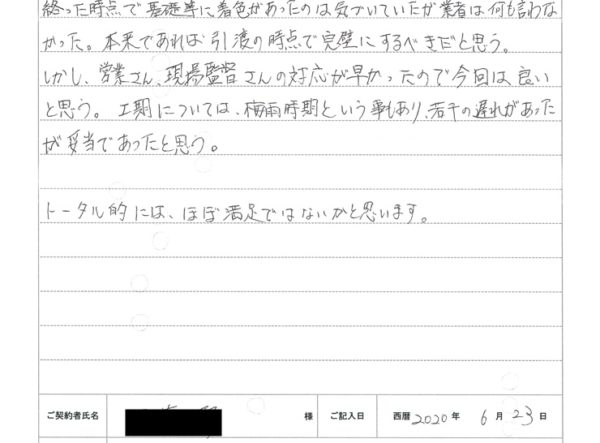 終った時点で基礎等に着色があったのは気づいていたが業者は何も言わな
かった。本来であれば引渡の時点で完璧にするべきだと思う。
しかし、営業さん、現場監督さんの対応が早かったので今回は良い
と思う。工期については、梅雨時期という事もあり、若干の遅れがあった
が妥当であったと思う。
トータル的には、ほぼ満足ではないかと思います。
ご契約者氏名 様 ご記入日 西暦 2020 年 6 月 23 日